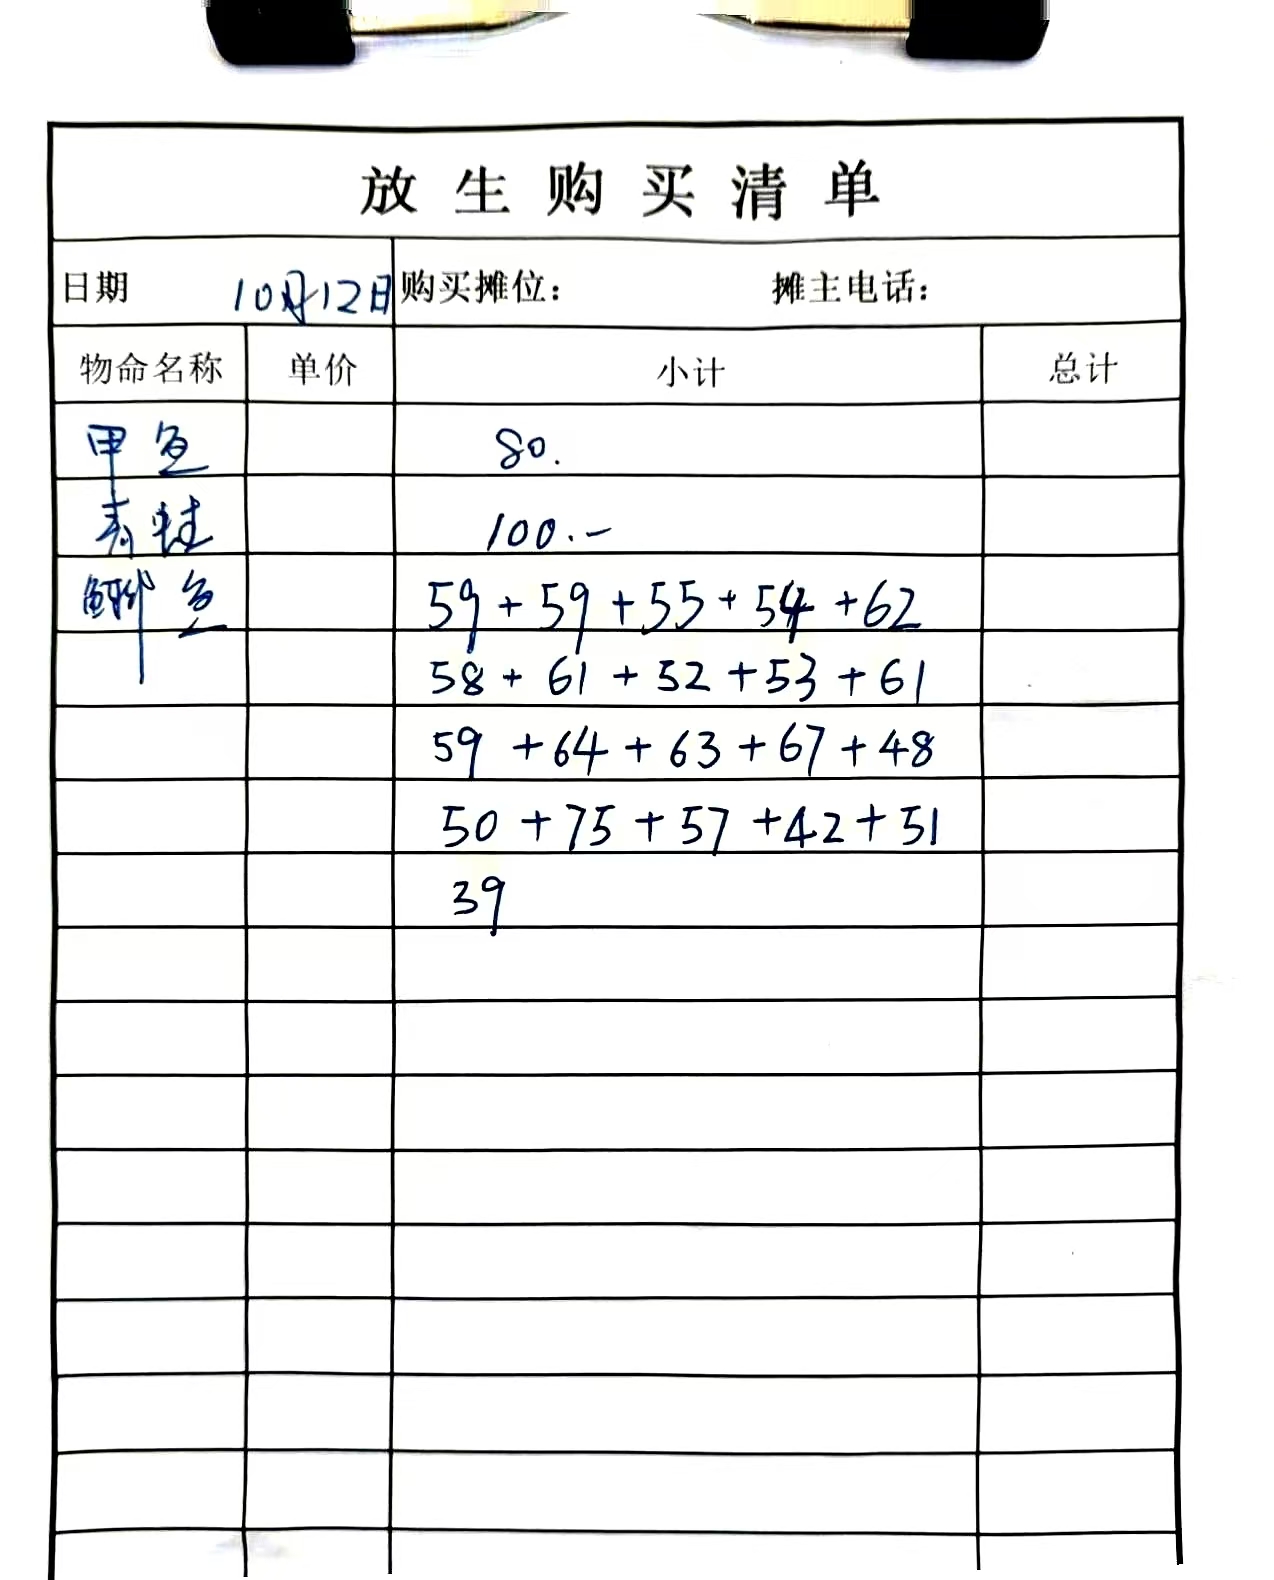 放生购买清单
日期 10月12日 购买摊位： 摊主电话：
物命名称 单价 小计 总计
甲鱼 80.
青蛙 100.-
鲫鱼 59+59+55+54+62
58+61+52+53+61
59+64+63+67+48
50+75+57+42+51
39